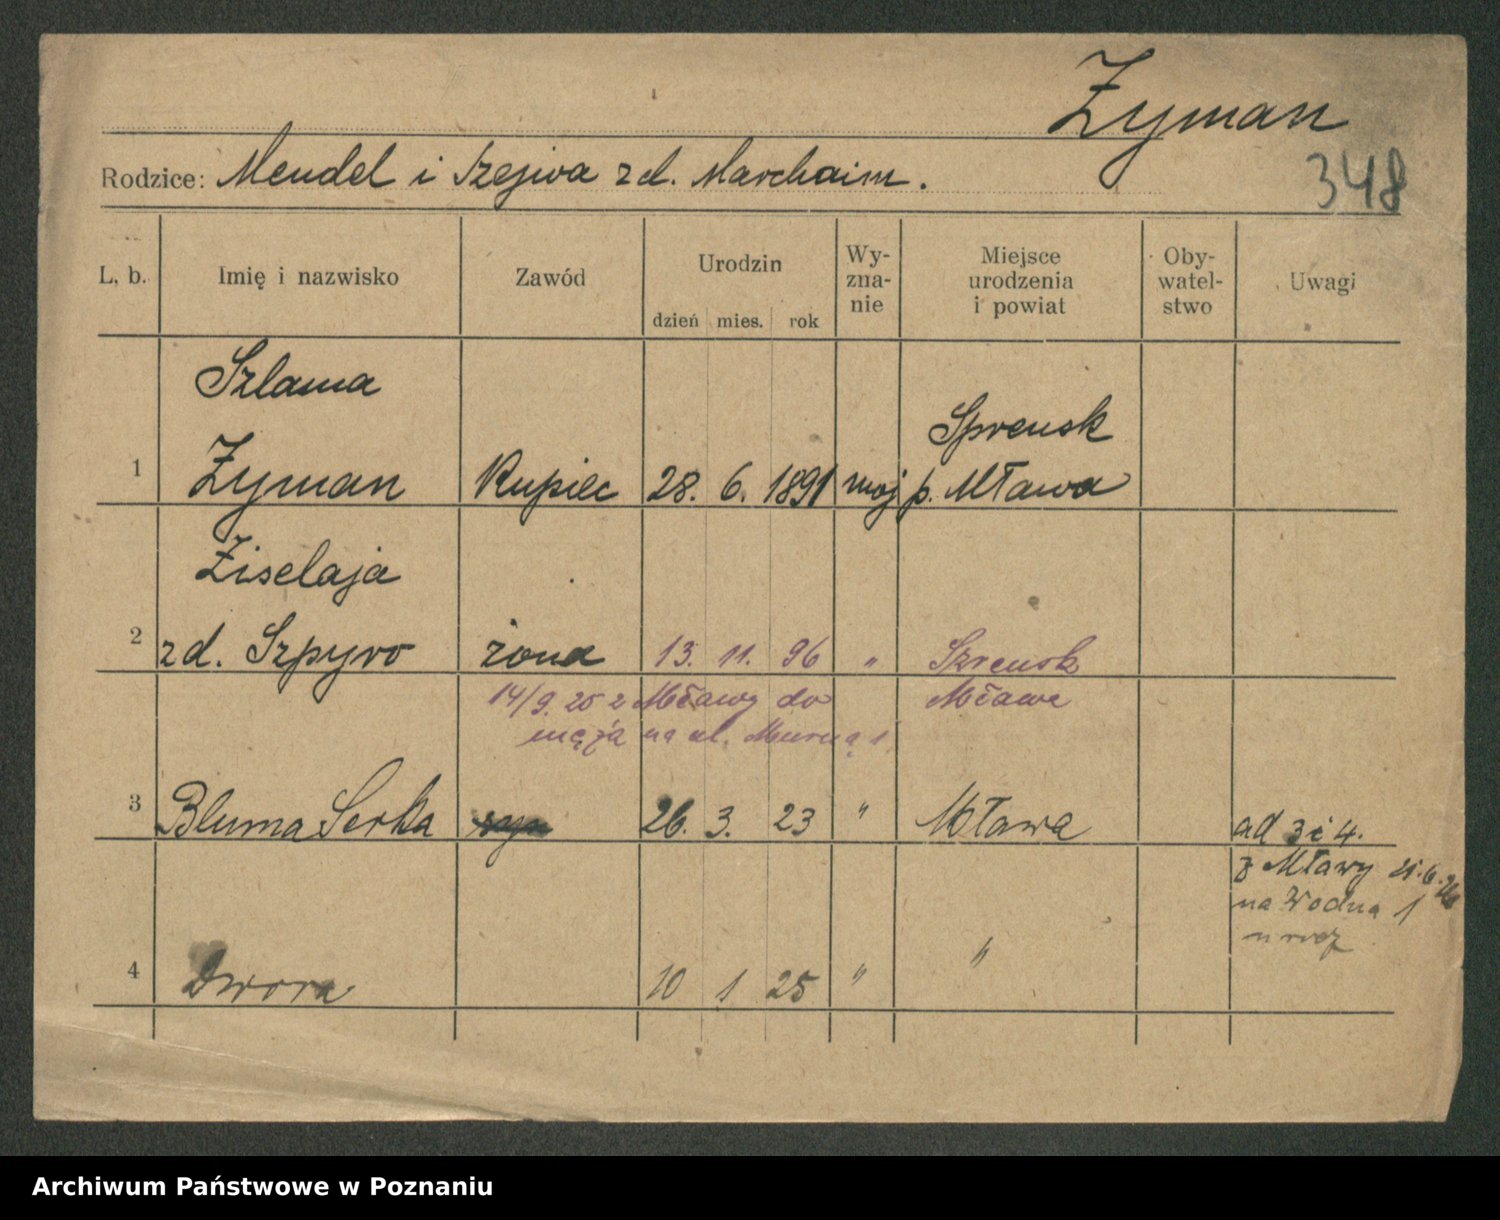 Zyman
348
Rodzice: Mendel i Szejwa z d. Marchaim.
L. b. Imię i nazwisko Zawód Urodzin Wy-zna-nie Miejsce urodzenia i powiat Oby-watel-stwo Uwagi
dzień mies. rok
Szlama
Sprensk
1 Zyman Kupiec 28. 6. 1891 moj p. Mława
Ziselaja
2 z d. Szpyro żona 13. 11. 96 " Szrensk
14/9. 25 z Mławy do Mława
męża na ul. Murną 1
3 Bluma Serka syn 26. 3. 23 " Mława ad 3 i 4.
z Mławy 21.6.26
na Wodna 1
4 Dwora 10 1 25 " "
Archiwum Państwowe w Poznaniu